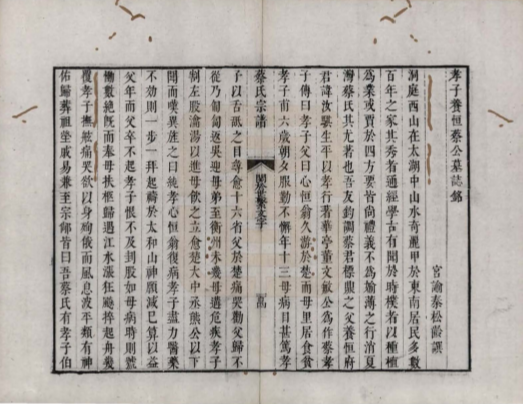 孝子養恒蔡公墓誌銘
宮諭秦松齡譔
洞庭西山在太湖中山水奇麗甲於東南居民多數
百年之家其秀者通經學古有聞於時樸者以種植
為業或賈於四方要皆尚禮義不為媮薄之行消夏
灣蔡氏其尤著也吾友鈞調蔡君標鼎之父養恒府
君諱汝 生平以孝行著華亭董文敏公為作蔡孝
子傳曰孝子父曰心恒翁久游於楚而母里居食貧
孝子甫六歲朝夕服勤不懈年十三母病目甚篤孝
子以舌䑛之目尋愈十六省父於楚痛哭勸父歸不
從乃匍匐返吳迎母弟至衡州未幾母遘危疾孝子
刲左股瀹湯以進母飲之立愈楚大中丞熊公以下
聞而嘆異旌之曰純孝心恒翁復病孝子盡力醫藥
不効則一步一拜起禱於太和山神願減已算以益
父年而父卒不起孝子恨不及刲股如母病時則號
慟數絶旣而奉母扶柩歸過江水漲狂飈捽起舟幾
覆孝子撫 痛哭欲以身殉俄而風息波平類有神
佑歸葬祖塋戚易兼至宗郁皆曰吾蔡氏有孝子伯
蔡氏宗譜